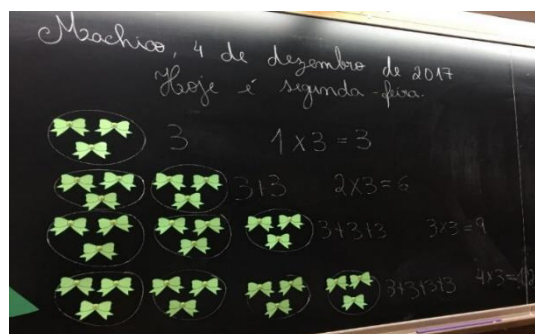 Machico, 4 de dezembro de 2017
Hoje é segunda-feira.
3 1 x 3 = 3
3+3 2x3=6
3+3+3 3x3=9
3+3+3+3 4x3=12